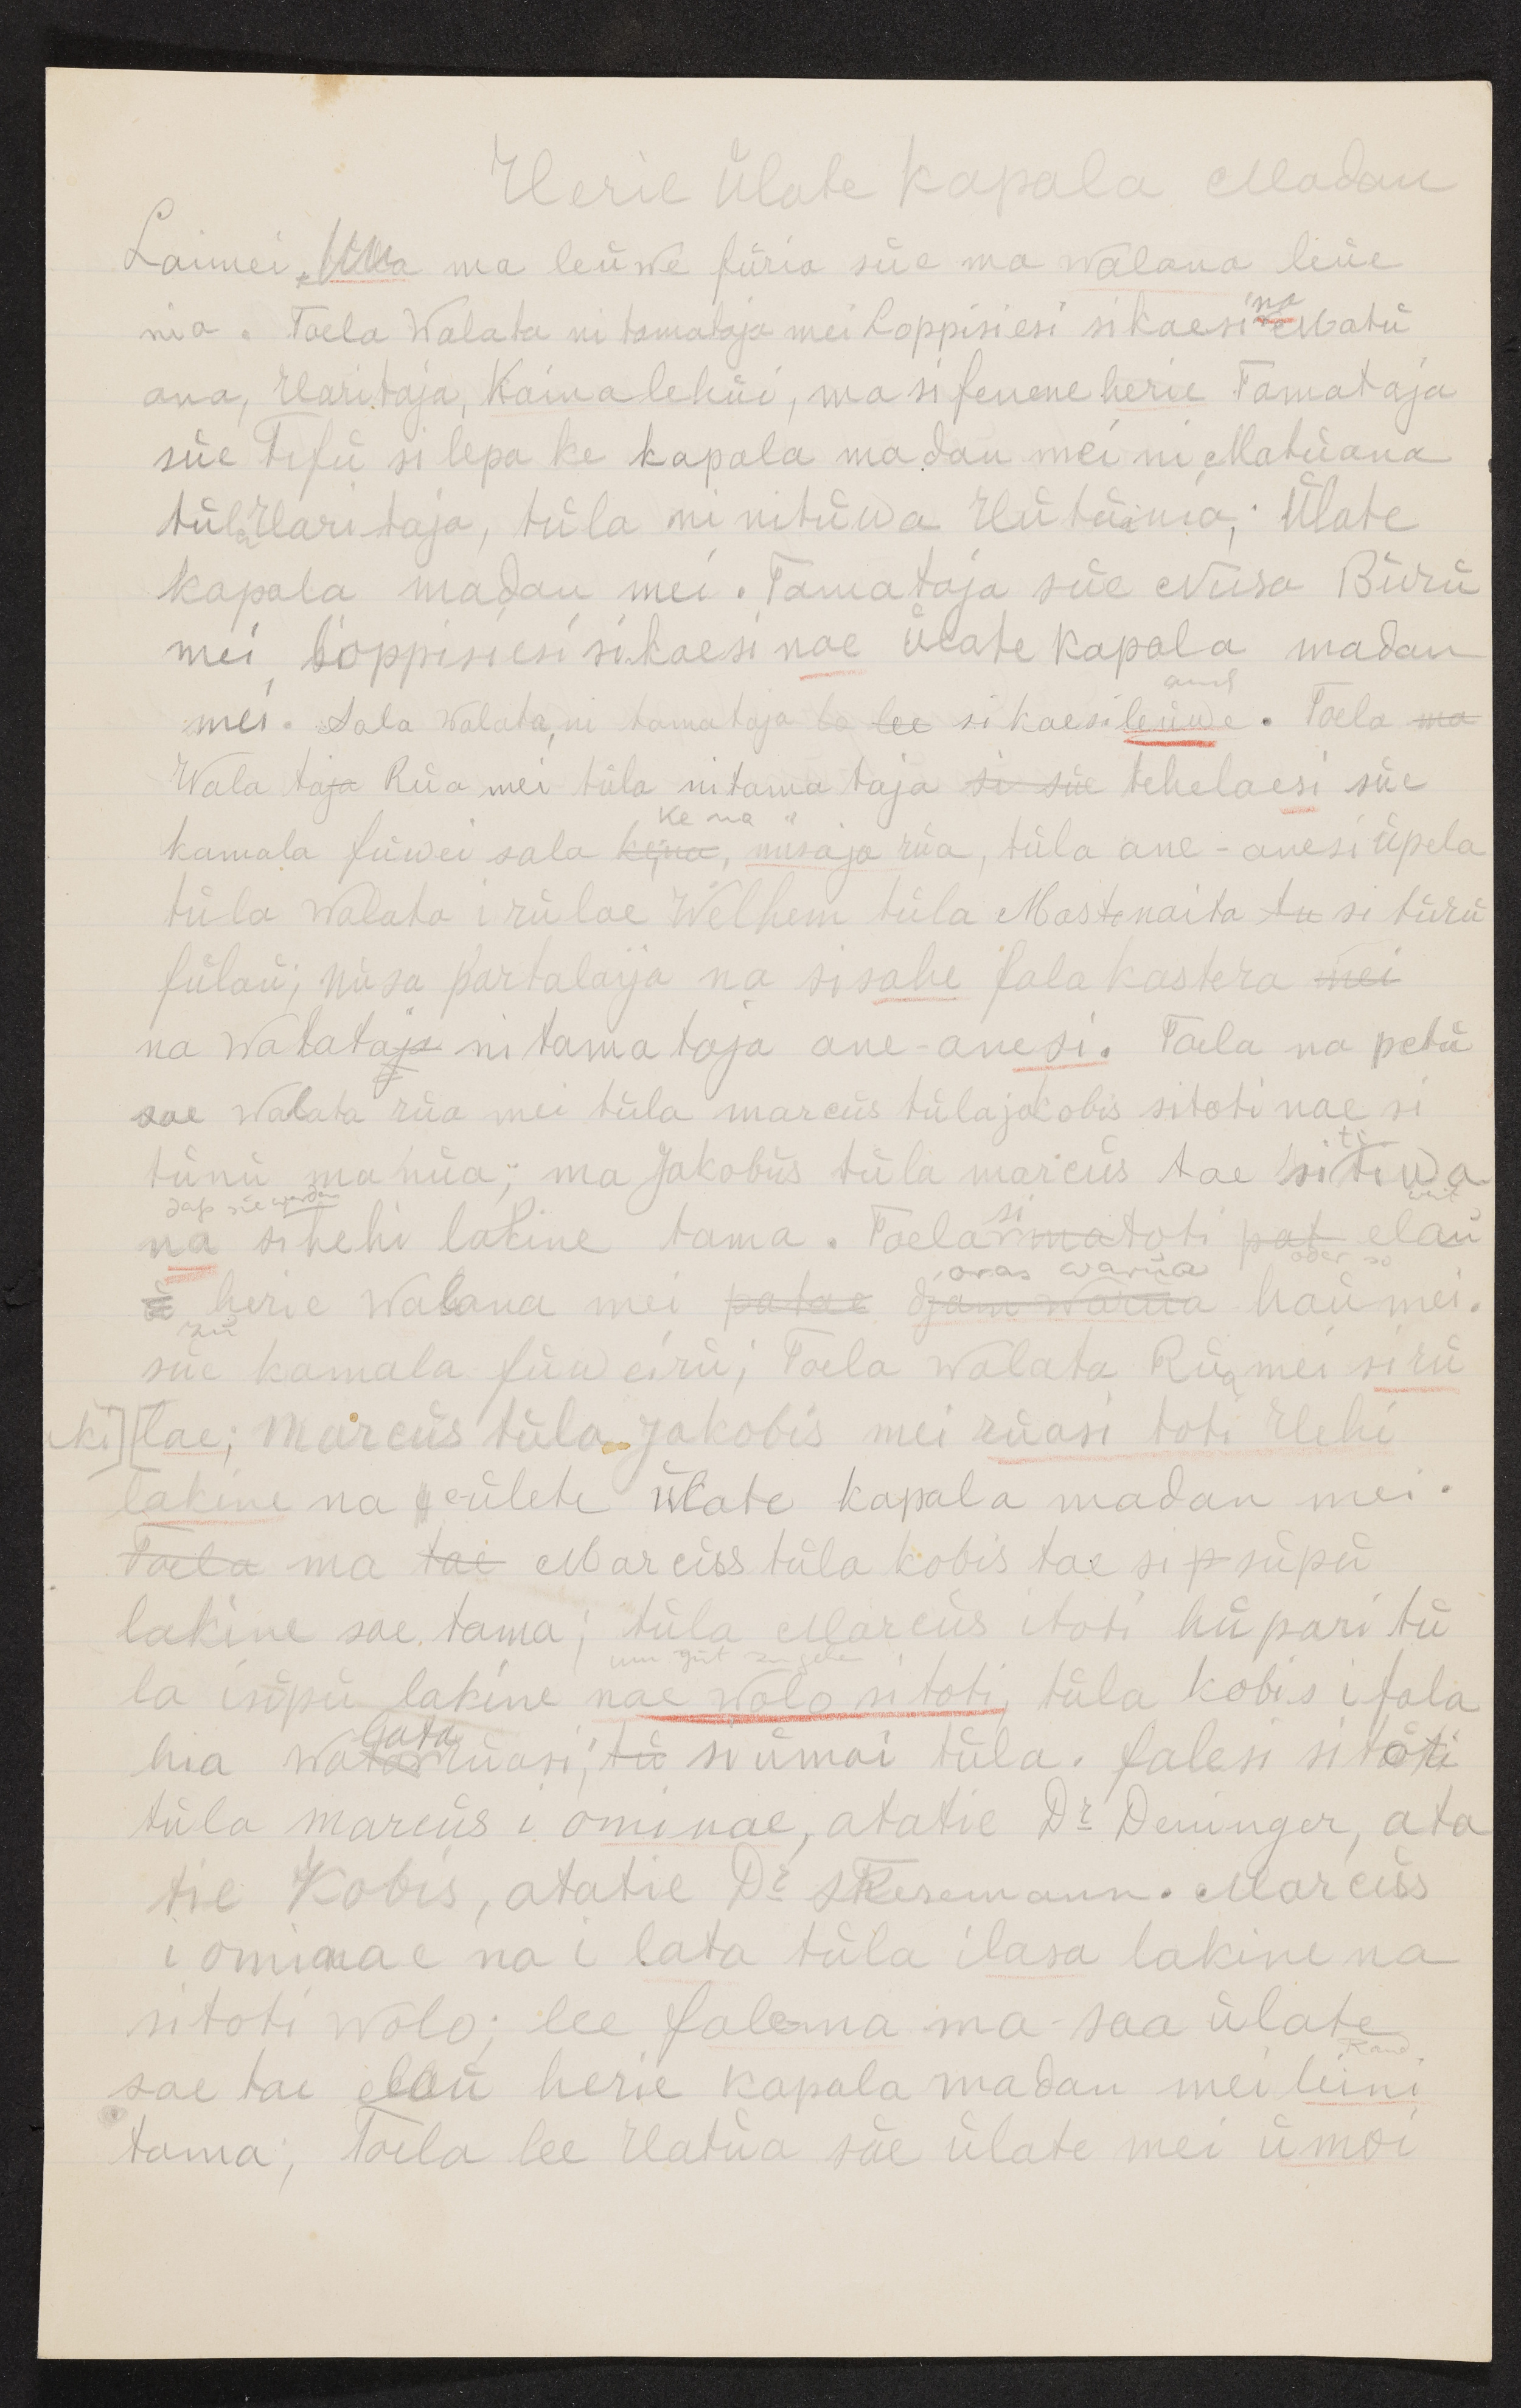 Herie Ülate kapala Madau
Laimei, ma leüwe füria süe ma walana leüe
nia. Taela Walata ni tamataja mei Loppisiesi sikaesi na Matü
ana, Haritaja, Kainalehüi, ma si fenene herie Tamataja
süe Tifü si lepa ke kapala madau mei ni Matüana
tüla Haritaja, tüla ni nitüwa Hütüina; Ülate
kapala madau mei. Tamataja süe Nüsa Bürü
mei loppisiesi sikaesi nae Ülate kapala madau
auch
mei. Sala walata, ni tamataja lo lee sikaesi leüwe. Taela ma
Wala taja Rüa mei tüla nitama taja si süe tehelaesi süe
ke na
kamala füwei sala kejna, nüsaja rüa, tüla ane-anesi üpela
tüla walata i rülae Welhem tüla Mastenaita tu si türü
fülaü; Nüsa partalaija na sisahe fala kastera mei
na watataja ni tamataja ane-anesi. Taela na petü
sae walata rüa mei tüla marcüs tüla jakobis sitoti nae si
tü
tünü mahüa; ma Jakobüs tüla marcüs tae si tiwa
dass sie werden
na sihehi lakine tama. Taela si matoti pat elaü
oder so
oras warüa
herie walana mei patae djam warüa haü mei.
zü
süe kamala füweirü; Taela walata Rüa mei si rü
ki] [lae; Marcüs tüla Jakobis mei rüasi toti Hehi
lakine na eülete ülate kapala madau mei.
Taela ma tae Marcüss tüla kobis tae si p süpü
lakine sae tama; tüla Marcüs itoti hüpari tü
um gut zu gehen
la isüpü lakine nae wolo sitoti, tüla kobis i fala
lata
hia rüasi; tü si ümai tüla. falesi sitoti
tüla marcüs i ominae, atatie Dr Deninger, ata
tie Kobis, atatie Dr Stresemann. Marcüss
i ominae na i lata tüla ilasa lakine na
sitoti wolo; lee falema ma saa ülate
Rand
sae tae elaü herie kapala madau mei leini
tama; Taela lee Hatüa süe ülate mei ümai